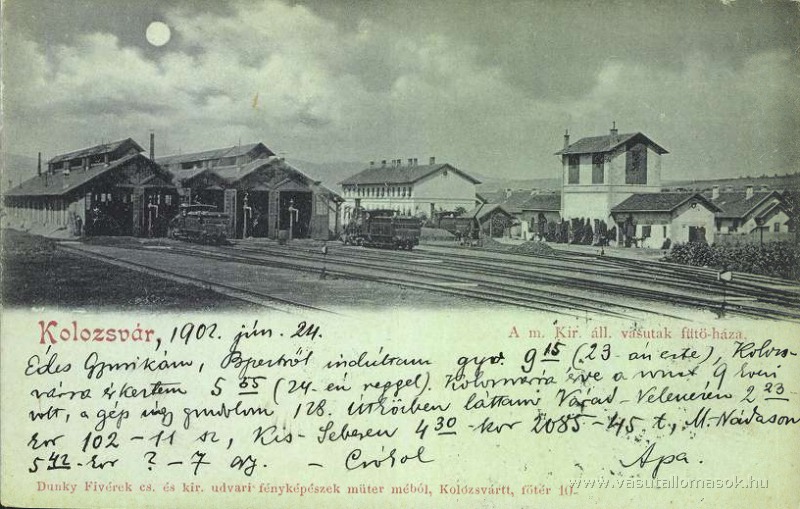 Kolozsvár, 1902. jún. 24.
A m. Kir. áll. vasutak fűtő-háza.
Édes Gyurikám, Bpestről indultam gyv. 9 15 (23-án este), Kolozs-
várra érkeztem 5 55 (24-én reggel). a 9
volt, a gép úgy gondolom 128. útközben láttam Várad-Velenczén 2 23
kor 102-11 sz, Kis-Sebesen 4 30-kor 2085-45. t, M. Nádason
5 42-kor ?-7 - Csókol Apa.
Dunky Fivérek cs. és kir. udvari fényképészek műter méből, Kolozsvártt, főtér 10.
www.vasutallomasok.hu